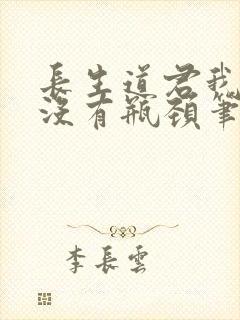 長生道君我
沒有瓶頸筆
李長雲